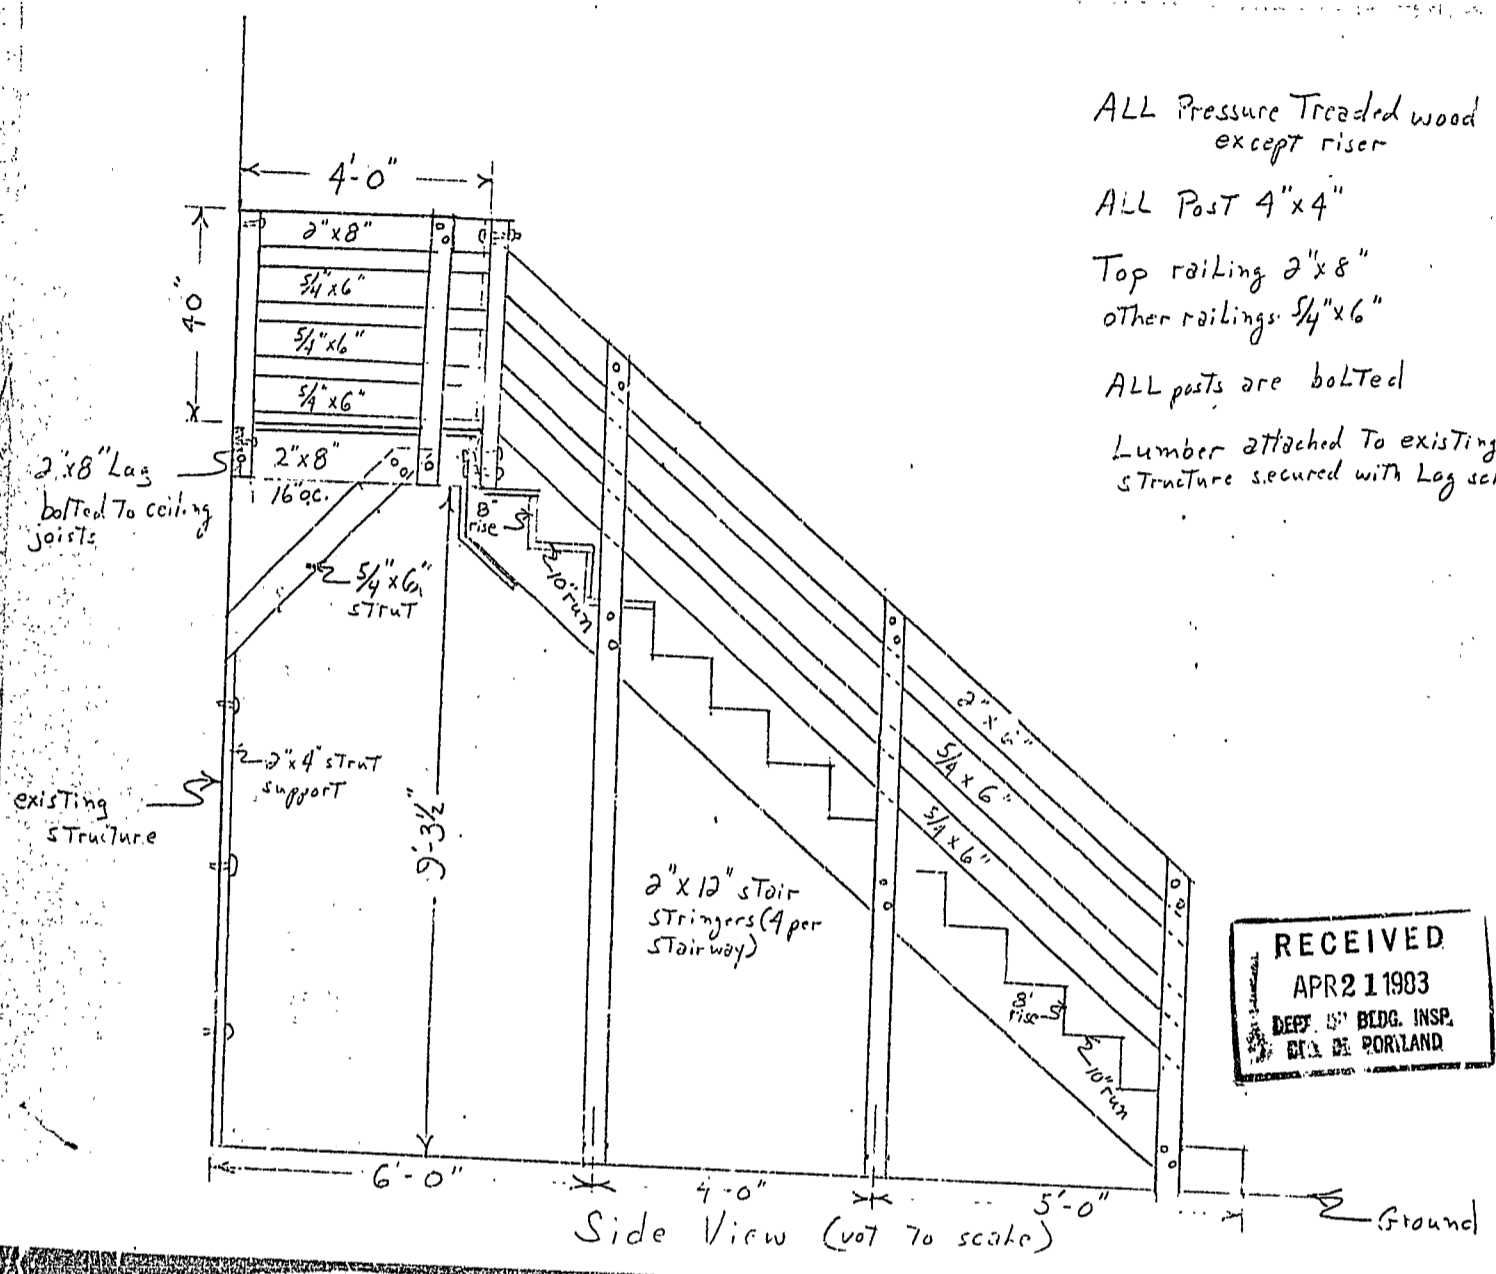 ALL Pressure Treaded wood
except riser
ALL Post 4"x4"
Top railing 2"x8"
other railings 5/4"x6"
ALL posts are bolted
Lumber attached To existing
structure secured with Lag
4'-0"
40"
2"x8"
5/4"x6"
5/4"x6"
5/4"x6"
2"x8"
16"o.c.
2"x8" Lag
bolted To ceiling
joists
8"
rise
10" run
5/4"x6"
strut
2"x4" strut
support
existing
structure
9'-3½"
2"x12" stair
stringers (4 per
stairway)
5/4 x 6"
5/4 x 6"
8"
rise
10" run
RECEIVED
APR 21 1983
DEPT. OF BLDG. INSP.
CITY OF PORTLAND
6'-0"
4-0"
5'-0"
Ground
Side View (not To scale)